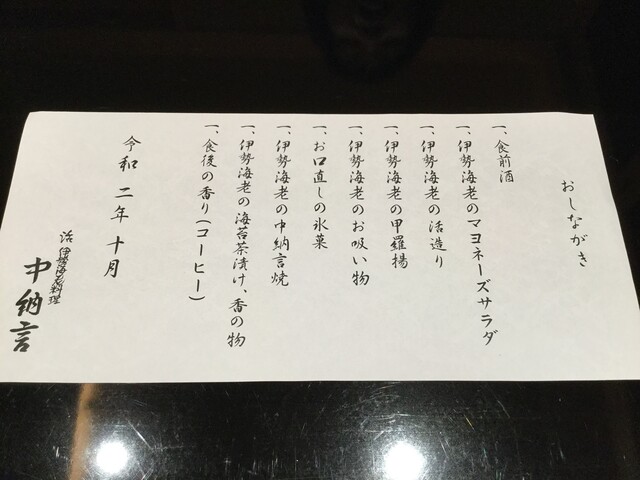 おしながき
一、食前酒
一、伊勢海老のマヨネーズサラダ
一、伊勢海老の活造り
一、伊勢海老の甲羅揚
一、伊勢海老のお吸い物
一、お口直しの氷菓
一、伊勢海老の中納言焼
一、伊勢海老の海苔茶漬け、香の物
一、食後の香り(コーヒー)
令和二年十月
伊勢海老料理
中納言